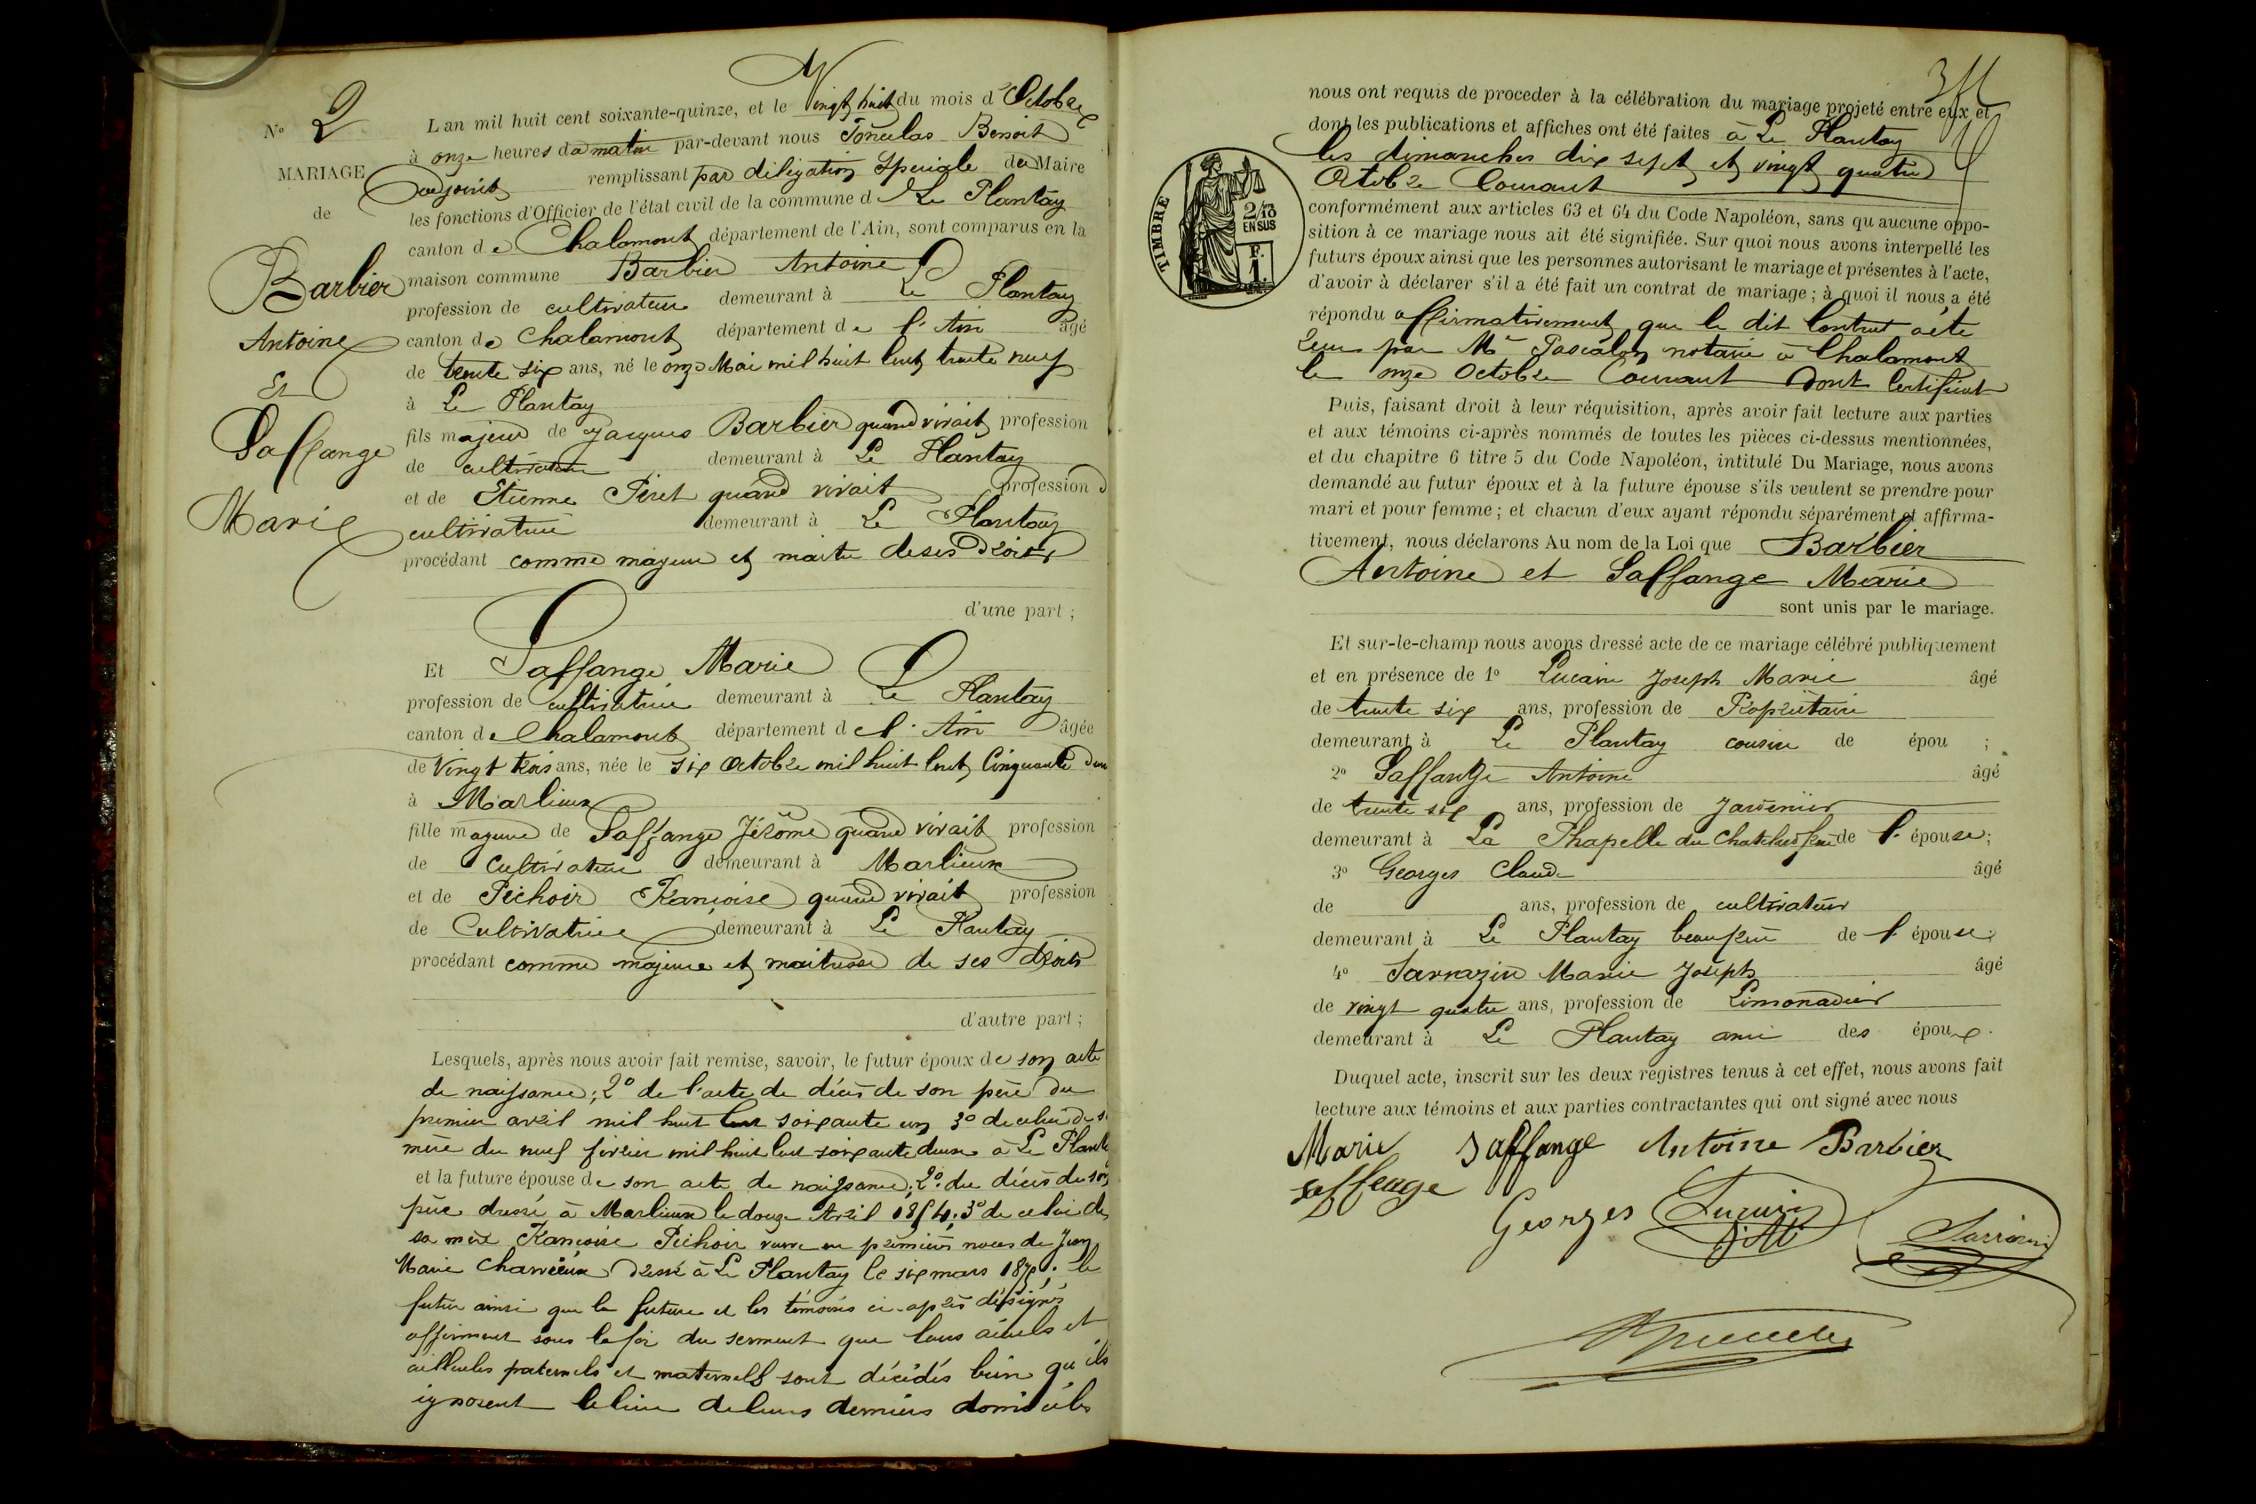 N° 2
MARIAGE
de
Barbier
Antoine
Et
Saffange
Marie
L'an mil huit cent soixante-quinze, et le Vingt huit du mois d'Octobre
à onze heures du matin par-devant nous Benoit
adjoint remplissant par délégation spéciale du Maire
les fonctions d'Officier de l'état civil de la commune d Le Plantay
canton de Chalamont département de l'Ain, sont comparus en la
maison commune Barbier Antoine
profession de cultivateur demeurant à Le Plantay
canton de Chalamont département de l'Ain âgé
de trente six ans, né le onze Mai mil huit cent trente neuf
à Le Plantay
fils majeur de Jacques Barbier quand vivait profession
de cultivateur demeurant à Le Plantay
et de Etienne Péret quand vivait profession d
cultivatrice demeurant à Le Plantay
procédant comme majeur et maitre de ses droits
d'une part ;
Et Saffange Marie
profession de cultivatrice demeurant à Le Plantay
canton de Chalamont département de l'Ain âgée
de Vingt trois ans, née le six Octobre mil huit cent Cinquante deux
à Marlieux
fille majeure de Saffange Jérôme quand vivait profession
de Cultivateur demeurant à Marlieux
et de Péchoir Françoise quand vivait profession
de Cultivatrice demeurant à Le Plantay
procédant comme majeure et maitresse de ses droits
d'autre part ;
Lesquels, après nous avoir fait remise, savoir, le futur époux de son acte
de naissance; 2° de l'acte de décès de son père du
premier avril mil huit cent soixante un 3° de celui de s
mère du neuf février mil huit cent soixante deux à Le Plant
et la future épouse de son acte de naissance; 2° du décès de son
père dressé à Marlieux le douze Avril 1854; 3° de celui de
sa mère Françoise Péchoir veuve en premières noces de Jean
Marie dressé à Le Plantay le six mars ; le
futur ainsi que la future et les témoins ci-après désignés
affirment sous la foi du serment que leurs aieuls et
aïlleules paternels et maternels sont décédés bien qu'ils
ignorent le lieu de leurs derniers domiciles
nous ont requis de proceder à la célébration du mariage projeté entre eux et
dont les publications et affiches ont été faites à Le Plantay
les dimanches dix sept et vingt quatre
Octobre Courant
conformément aux articles 63 et 64 du Code Napoléon, sans qu'aucune oppo-
sition à ce mariage nous ait été signifiée. Sur quoi nous avons interpellé les
futurs époux ainsi que les personnes autorisant le mariage et présentes à l'acte,
d'avoir à déclarer s'il a été fait un contrat de mariage ; à quoi il nous a été
répondu affirmativement que le dit Contrat a été
reçu par Me Pascalon notaire à Chalamont
le onze Octobre Courant dont Certificat
Puis, faisant droit à leur réquisition, après avoir fait lecture aux parties
et aux témoins ci-après nommés de toutes les pièces ci-dessus mentionnées,
et du chapitre 6 titre 5 du Code Napoléon, intitulé Du Mariage, nous avons
demandé au futur époux et à la future épouse s'ils veulent se prendre pour
mari et pour femme ; et chacun d'eux ayant répondu séparément et affirma-
tivement, nous déclarons Au nom de la Loi que Barbier
Antoine et Saffange Marie
sont unis par le mariage.
Et sur-le-champ nous avons dressé acte de ce mariage célébré publiquement
et en présence de 1° Joseph Marie âgé
de trente six ans, profession de Propriétaire
demeurant à Le Plantay cousin de épou ;
2° Saffange Antoine âgé
de trente six ans, profession de Jardinier
demeurant à La Chapelle du Chatelard frère de l'épouse;
3° Georges Claude âgé
de ans, profession de cultivateur
demeurant à Le Plantay beau frère de l'épouse;
4° Sarrazin Marie Joseph âgé
de vingt quatre ans, profession de Limonadier
demeurant à Le Plantay ami des époux.
Duquel acte, inscrit sur les deux registres tenus à cet effet, nous avons fait
lecture aux témoins et aux parties contractantes qui ont signé avec nous
Marie Saffange Antoine Barbier
saffange
Georges
Sarrazin
TIMBRE
2/10
EN SUS
F.
1.